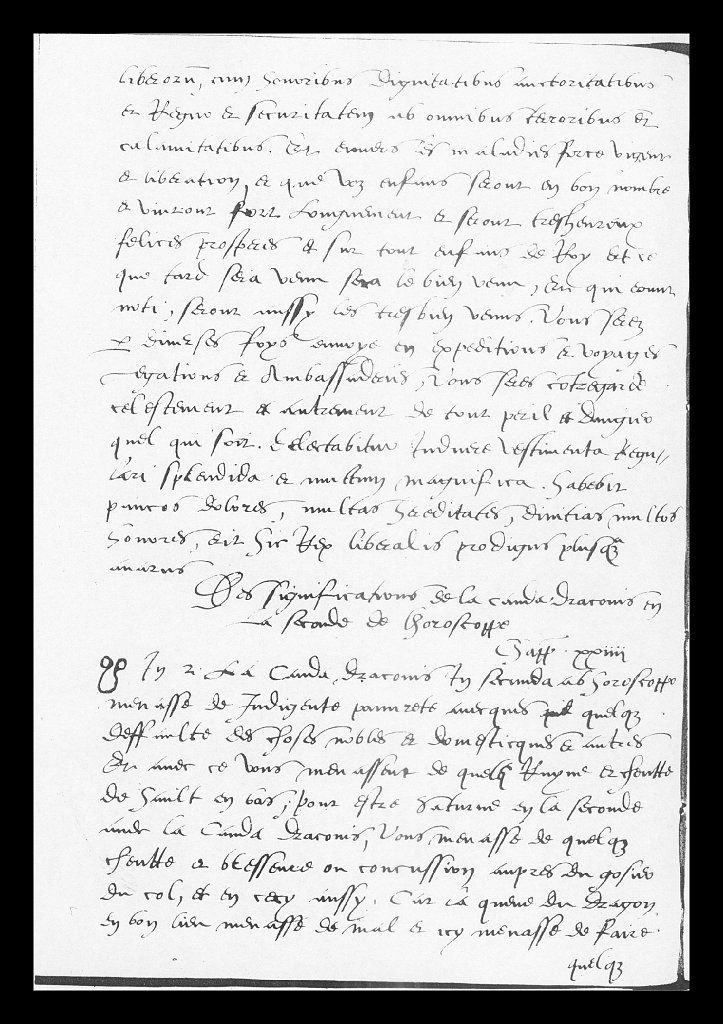 liberorū, cum honoribus Dignitatibus auctoritatibus
et Regno et securitatem ab omnibus teroribus et
calamitatibus. Et envers es maladies force vigeur
et liberation, et que voz enfans seront en bon nombre
et viuront fort Longuement et seront tresheureux
felices prosperes et sur tout enfans de Roy et ce
que tard sera venu sera le bien venu, Et qui erunt
noti, seront aussy les tresbien venus. Vous serez
p diverses foys envoye en expeditions et voyages
Legations et Ambassaderies, Vous seres cōtregardé
celestement et autrement de tout peril et danger
quel qui soit. Delectabitur Induere vestimenta Regu-
lari splendida et multum magnifica. habebit
paucos dolores, multas hereditates, divitias multos
honores, erit hic Rex liberalis prodigus plusqz
avarus
Des significations de la Cauda Draconis en
La seconde de lhoroscoppe
Chapp. xxiiii
In 2. La Cauda draconis In secunda ab horoscoppo
menasse de Indigente pauurete auecques quelqz
deffaulte des choses nobles et domesticques et autres
Et avec ce vous menassent de quelqz Ruyne et cheutte
de hault en bas, pour estre Saturne en la seconde
avec la Cauda Draconis, Vous menasse de quelqz
cheutte et blesseure ou concussion aupres du gosier
du col, et en cecy aussy. Car la queue du Dragon
en bon lieu menasse de mal et icy menasse de faire
quelqz